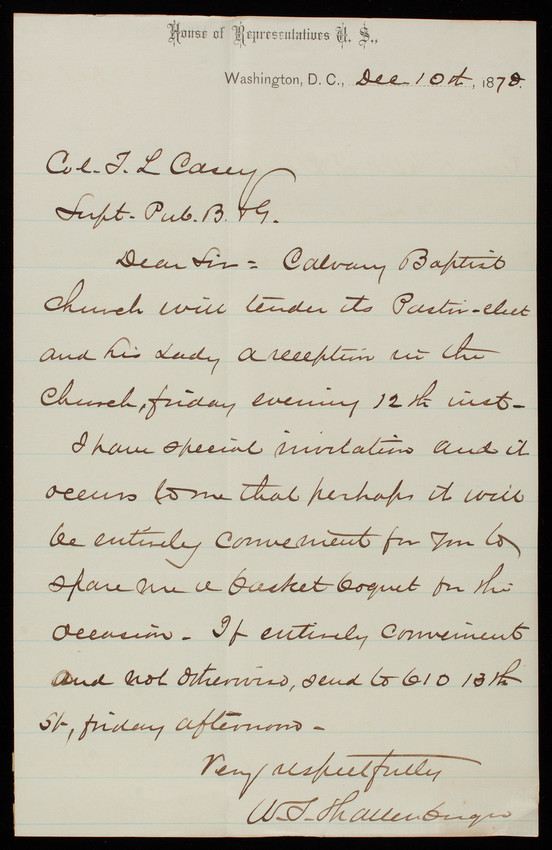 House of Representatives U. S.,
Washington, D. C., Dec 10th, 1879.
Col. T. L Casey
Supt. Pub. B. & G.
Dear Sir = Calvary Baptist
Church will tender its Pastor-elect
and his Lady a reception in the
Church, friday evening 12th inst-
I have special invitation and it
occurs to me that perhaps it will
be entirely convenient for you to
spare me a basket boquet for the
occasion - If entirely convenient
and not otherwise, send to 610 13th
St, friday afternoon -
Very respectfully
W. S. Shallenberger